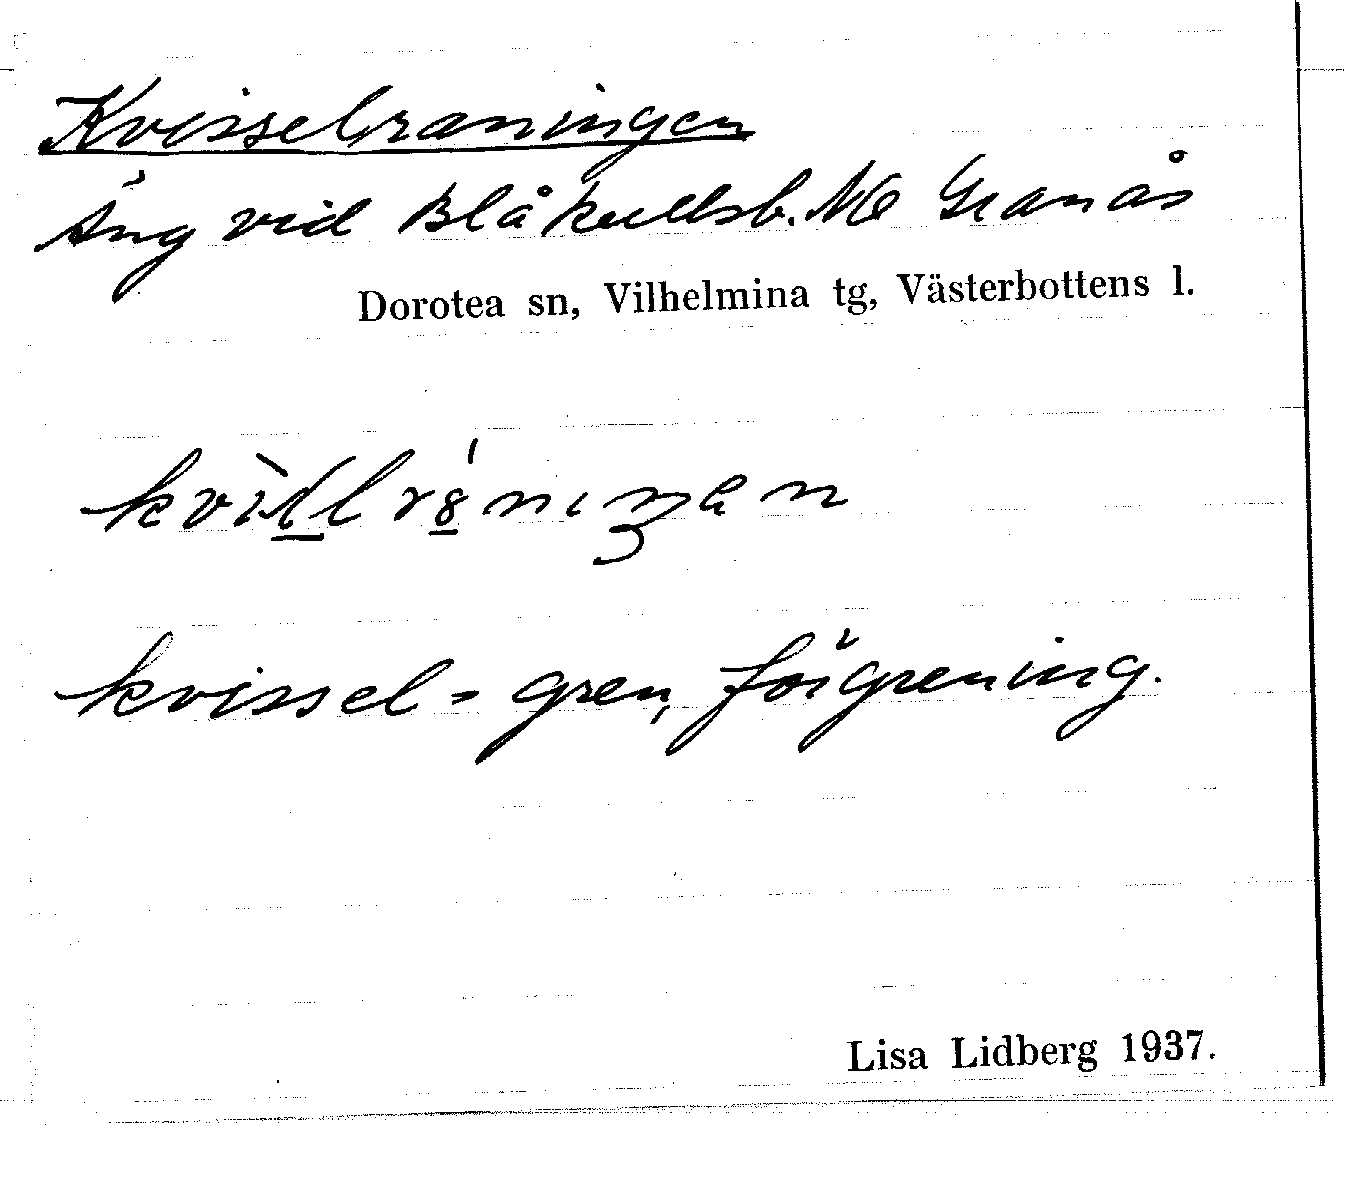 Kvisselraningen
Äng vid Blåkullsb. NO Granås
Dorotea sn, Vilhelmina tg, Västerbottens l.
kvissel = gren, förgrening.
Lisa Lidberg 1937.